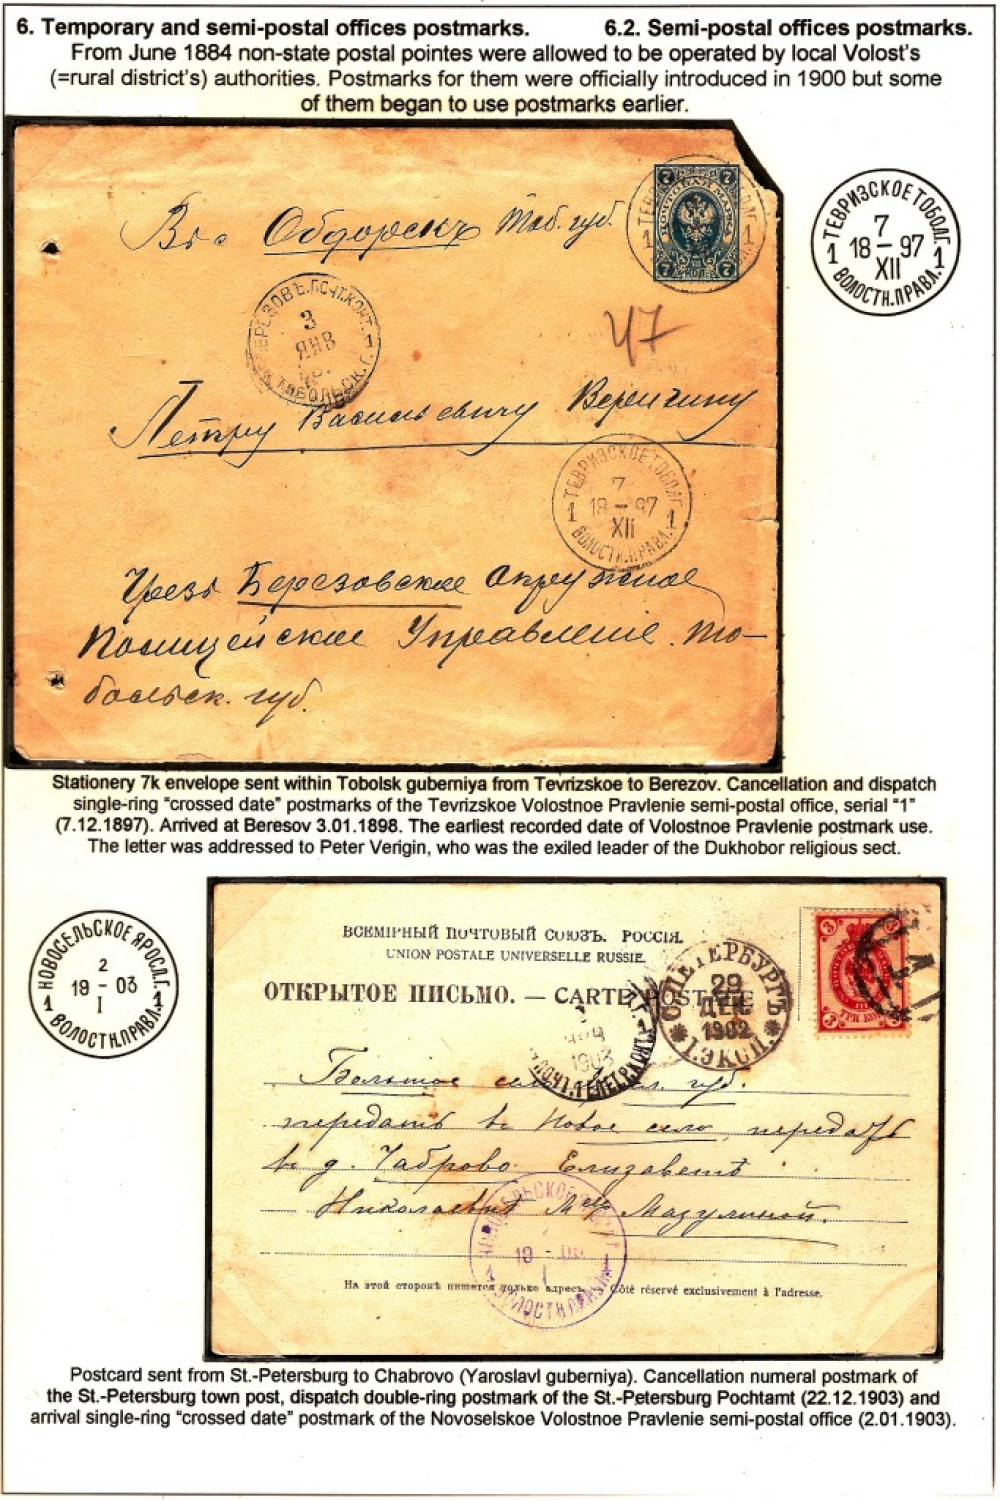 6. Temporary and semi-postal offices postmarks. 6.2. Semi-postal offices postmarks.
From June 1884 non-state postal pointes were allowed to be operated by local Volost's
(=rural district's) authorities. Postmarks for them were officially introduced in 1900 but some
of them began to use postmarks earlier.
7 7
ПОЧТОВАЯ МАРКА
7 КОП. 7
Въ с Обдорскъ Тоб. губ.
ТЕВРИЗСКОЕ ТОБОЛ.Г.
7
1 18 – 97 1
XII
ВОЛОСТН.ПРАВЛ.
47
БЕРЕЗОВЪ.ПОЧТ.КОНТ.
3
ЯНВ
ТОБОЛЬСК.Г.
Петру Васильевичу Веригину
ТЕВРИЗСКОЕ ТОБОЛ.Г.
7
1 18 – 97 1
XII
ВОЛОСТН.ПРАВЛ.
Чрезъ Березовское Окружное
Полицейское Управление. То-
больск. губ.
Stationery 7k envelope sent within Tobolsk guberniya from Tevrizskoe to Berezov. Cancellation and dispatch
single-ring “crossed date” postmarks of the Tevrizskoe Volostnoe Pravlenie semi-postal office, serial “1”
(7.12.1897). Arrived at Beresov 3.01.1898. The earliest recorded date of Volostnoe Pravlenie postmark use.
The letter was addressed to Peter Verigin, who was the exiled leader of the Dukhobor religious sect.
НОВОСЕЛЬСКОЕ ЯРОСЛ.Г.
2
1 19 – 03 1
I
ВОЛОСТН.ПРАВЛ.
ВСЕМІРНЫЙ ПОЧТОВЫЙ СОЮЗЪ. РОССІЯ.
UNION POSTALE UNIVERSELLE RUSSIE.
ОТКРЫТОЕ ПИСЬМО. — CARTE POSTALE
С.ПЕТЕРБУРГЪ
29
ДЕК
1902
1.ЭКСП.
3 3
3 ТРИ КОП. 3
1903
ПОЧТ.ТЕЛЕГРАФН.
Большое село губ.
передать въ Новое село, передать
въ д. Чаброво Елизаветѣ
Николаевнѣ Мазулиной.
НОВОСЕЛЬСКОЕ
19 –
I
ВОЛОСТН.ПРАВЛ.
На этой сторонѣ пишется только адресъ. Côté réservé exclusivement à l'adresse.
Postcard sent from St.-Petersburg to Chabrovo (Yaroslavl guberniya). Cancellation numeral postmark of
the St.-Petersburg town post, dispatch double-ring postmark of the St.-Petersburg Pochtamt (22.12.1903) and
arrival single-ring “crossed date” postmark of the Novoselskoe Volostnoe Pravlenie semi-postal office (2.01.1903).